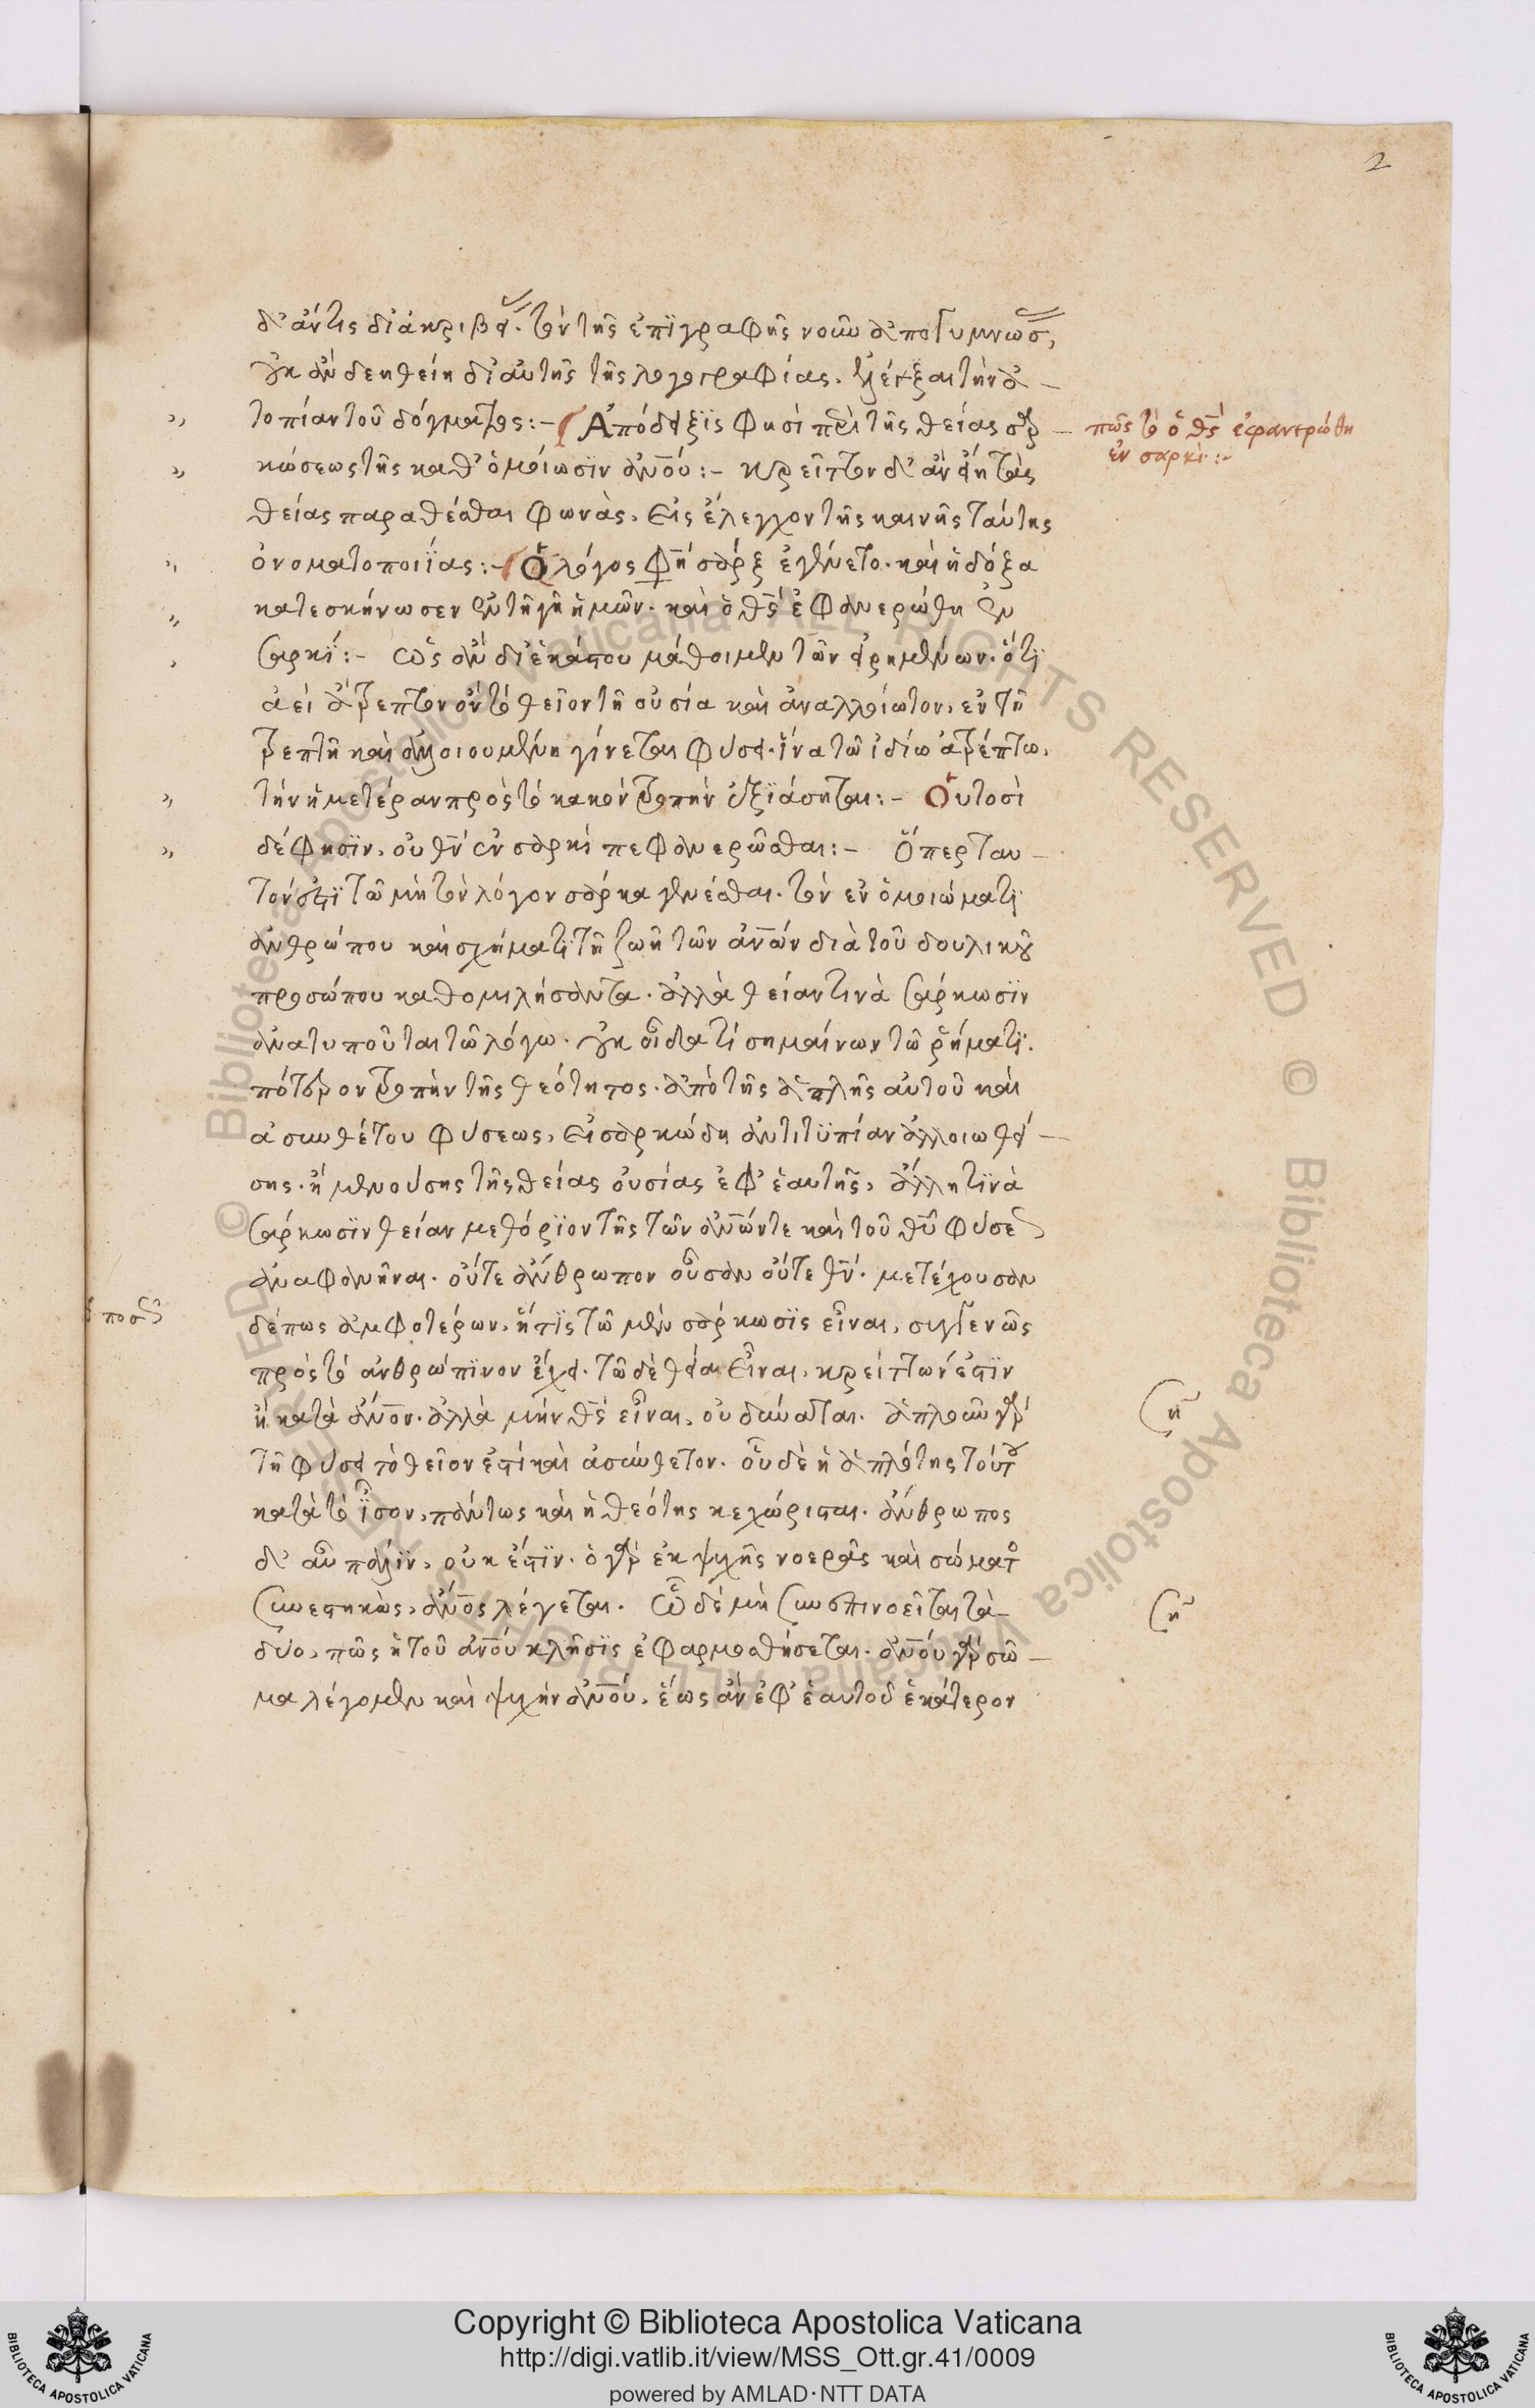 2
δ' ἄν τις δι' ἀκριβεί. τὸν τῆς ἐπιγραφῆς νοῦν ἀπογυμνῶσ,
οὐκ ἂν δεηθείη δι' αὐτῆς τῆς λογογραφίας, ἐλέγξαι τὴν ἀ-
τοπίαν τοῦ δόγματος:- Ἀπόδειξις φησὶ περὶ τῆς θείας σαρ-
πῶς τὸ ὁ θς ἐφανερώθη
ἐν σαρκί:-
κώσεως τῆς καθ' ὁμοίωσιν ἀνου:- κρεῖττον δ' ἂν εἴη τὰς
θείας παραθέσθαι φωνὰς, εἰς ἔλεγχον τῆς καινῆς ταύτης
ὀνοματοποιίας:- Ὁ λόγος φη σὰρξ ἐγένετο. καὶ ἡ δόξα
κατεσκήνωσεν ἐν τῇ γῇ ἡμῶν. καὶ ὁ θς ἐφανερώθη ἐν
σαρκί:- ὡς ἂν δι' ἑκάστου μάθοιμεν τῶν εἰρημένων. ὅτι
ἀεὶ ἄτρεπτον ὂν τὸ θεῖον τῇ οὐσία καὶ ἀναλλοίωτον, ἐν τῇ
τρεπτῇ καὶ ἀλλοιουμένη γίνεται φύσει. ἵνα τῶ ἰδίω ἀτρέπτω,
τὴν ἡμετέραν πρὸς τὸ κακὸν τροπὴν ἐξιάσηται:- Οὑτοσὶ
δέ φησιν, οὐ θν ἐν σαρκὶ πεφανερῶσθαι:- Ὅπερ ταυ-
τόν ἐστι τῶ μὴ τὸν λόγον σάρκα γενέσθαι. τὸν ἐν ὁμοιώματι
ἀνθρώπου καὶ σχήματι τῇ ζωῇ τῶν ἀνων διὰ τοῦ δουλικοῦ
προσώπου καθομιλήσαντα. ἀλλὰ θείαν τινὰ σάρκωσιν
ἀνατυποῦται τῶ λόγω. οὐκ οἶδα τί σημαίνων τῶ ῥήματι.
πότερον τροπὴν τῆς θεότητος. ἀπὸ τῆς ἁπλῆς αὐτοῦ καὶ
ἀσυνθέτου φύσεως, εἰς σαρκώδη ἀντιτυπίαν ἀλλοιωθεί-
σης. ἢ μενούσης τῆς θείας οὐσίας ἐφ' ἑαυτῆς, ἄλλη τινὰ
σάρκωσιν θείαν μεθόριον τῆς τῶν ἀνων τε καὶ τοῦ θυ φύσε
ἀναφανῆναι. οὔτε ἄνθρωπον οὖσαν οὔτε θν. μετέχουσαν
δέ πως ἀμφοτέρων, ἥτις τῶ μὲν σάρκωσις εἶναι, συγγενῶς
πρὸς τὸ ἀνθρώπινον ἔχει. τῶ δὲ θεία εἶναι, κρείττων ἐστὶν
ἢ κατὰ ἄνον. ἀλλὰ μὴν θς εἶναι, οὐ δύναται. ἁπλοῦν γὰρ
τῇ φύσει τὸ θεῖον ἐστὶ καὶ ἀσύνθετον. οὗ δὲ ἡ ἁπλότης τούτου
κατὰ τὸ ἴσον, πάντως καὶ ἡ θεότης κεχώρισται. ἄνθρωπος
δ' αὖ πάλιν, οὐκ ἔστιν. ὁ γὰρ ἐκ ψυχῆς νοερᾶς καὶ σώματο
συνεστηκὼς, ἄνος λέγεται. ὧ δὲ μὴ συνεπινοεῖται τὰ
δύο, πῶς ἡ τοῦ ἀνου κλῆσις ἐφαρμοσθήσεται. ἀνου γὰρ σῶ-
μα λέγομεν καὶ ψυχὴν ἀνου, ἕως ἂν ἐφ' ἑαυτοῦ ἑκάτερον
Copyright © Biblioteca Apostolica Vaticana
http://digi.vatlib.it/view/MSS_Ott.gr.41/0009
powered by AMLAD·NTT DATA